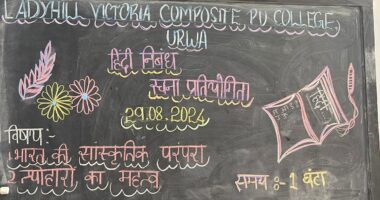 LADYHILL VICTORIA COMPOSITE PU COLLEGE,
URWA
हिंदी निबंध
रचना प्रतियोगिता
29.08.2024
विषय:-
1 भारत की सांस्कृतिक परंपरा
2 त्योहारों का महत्व
समय :- 1 घंटा